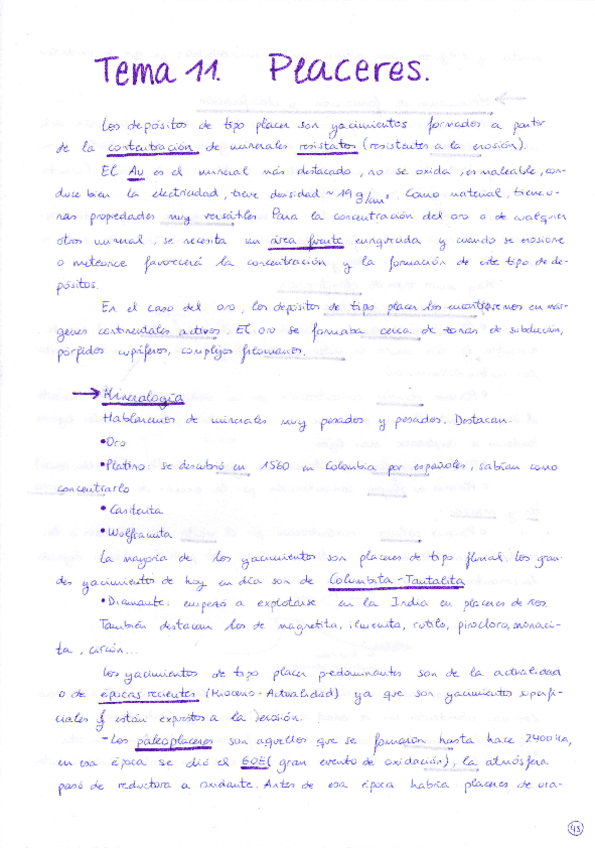 Tema 11. Placeres.
Los depósitos de tipo placer son yacimientos formados a partir
de la concentración de minerales resistatos (resistentes a la erosión).
El Au es el mineral más destacado, no se oxida, es maleable, con-
duce bien la electricidad, tiene densidad ~19 g/cm³. Como material, tiene u-
nas propiedades muy versátiles. Para la concentración del oro o de cualquier
otro mineral, se necesita un área fuente enriquecida y cuando se erosione
o meteorice favorecerá la concentración y la formación de este tipo de de-
pósitos.
En el caso del oro, los depósitos de tipo placer los encontraremos en már-
genes continentales activos. El oro se formaba cerca de zonas de subducción,
pórfidos cupríferos, complejos filonianos.
→ Mineralogía
Hablaremos de minerales muy pesados y pesados. Destacan:
•Oro
•Platino: se descubrió en 1560 en Colombia por españoles, sabían como
concentrarlo
• Casiterita
• Wolframita
La mayoría de los yacimientos son placeres de tipo fluvial. Los gran-
des yacimientos de hoy en día son de Columbita-Tantalita
•Diamante: empezó a explotarse en la India en placeres de ríos.
También destacan los de magnetita, ilmenita, rutilo, pirocloro, monaci-
ta, circón...
Los yacimientos de tipo placer predominantes son de la actualidad
o de épocas recientes (Mioceno-Actualidad) ya que son yacimientos superfi-
ciales y están expuestos a la erosión.
- Los paleoplaceres son aquellos que se formaron hasta hace 2400 Ma,
en esa época se dió el GOE (gran evento de oxidación), la atmósfera
pasó de reductora a oxidante. Antes de esa época había placeres de ura-
43